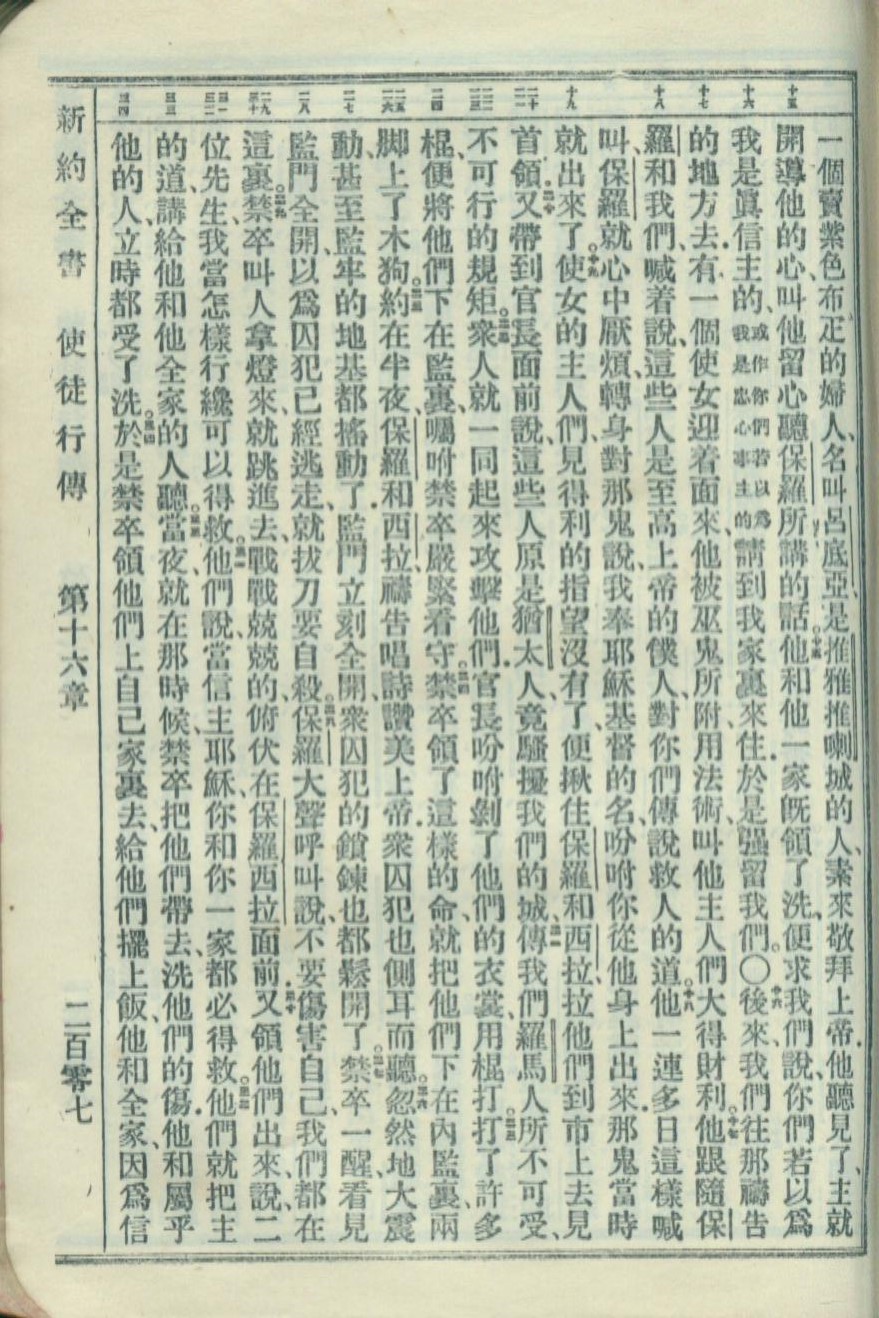 十五 十六 十七 十八 十九 二十 二一 二二 二三 二四 二五 二六 二七 二八 二九 三十 三一 三二 三三 三四
一個賣紫色布疋的婦人、名叫呂底亞、是推雅推喇城的人、素來敬拜上帝、他聽見了、主就
開導他的心、叫他留心聽保羅所講的話。十五他和他一家既領了洗、便求我們說、你們若以爲
我是眞信主的、或作你們若以爲我是忠心事主的請到我家裏來住、於是强留我們。〇十六後來、我們往那禱告
的地方去、有一個使女迎着面來、他被巫鬼所附、用法術叫他主人們大得財利。十七他跟隨保
羅和我們、喊着說、這些人是至高上帝的僕人、對你們傳說救人的道。十八他一連多日這樣喊
叫、保羅就心中厭煩、轉身對那鬼說、我奉耶穌基督的名、吩咐你從他身上出來、那鬼當時
就出來了。十九使女的主人們、見得利的指望沒有了、便揪住保羅和西拉、拉他們到市上去見
首領。二十又帶到官長面前說、這些人原是猶太人、竟騷擾我們的城、二一傳我們羅馬人所不可受、
不可行的規矩。二二衆人就一同起來攻擊他們、官長吩咐剝了他們的衣裳、用棍打。二三打了許多
棍、便將他們下在監裏、囑咐禁卒嚴緊看守。二四禁卒領了這樣的命、就把他們下在內監裏、兩
脚上了木狗。二五約在半夜、保羅和西拉、禱告唱詩讚美上帝、衆囚犯也側耳而聽。二六忽然地大震
動、甚至監牢的地基都搖動了、監門立刻全開、衆囚犯的鎖鍊也都鬆開了。二七禁卒一醒、看見
監門全開、以爲囚犯已經逃走、就拔刀要自殺。二八保羅大聲呼叫說、不要傷害自己、我們都在
這裏。二九禁卒叫人拿燈來、就跳進去、戰戰兢兢的俯伏在保羅西拉面前、三十又領他們出來、說、二
位先生、我當怎樣行纔可以得救。三一他們說、當信主耶穌、你和你一家都必得救。三二他們就把主
的道、講給他和他全家的人聽。三三當夜、就在那時候、禁卒把他們帶去、洗他們的傷、他和屬乎
他的人、立時都受了洗。三四於是禁卒領他們上自己家裏去、給他們擺上飯、他和全家、因爲信
新約全書 使徒行傳 第十六章 二百零七